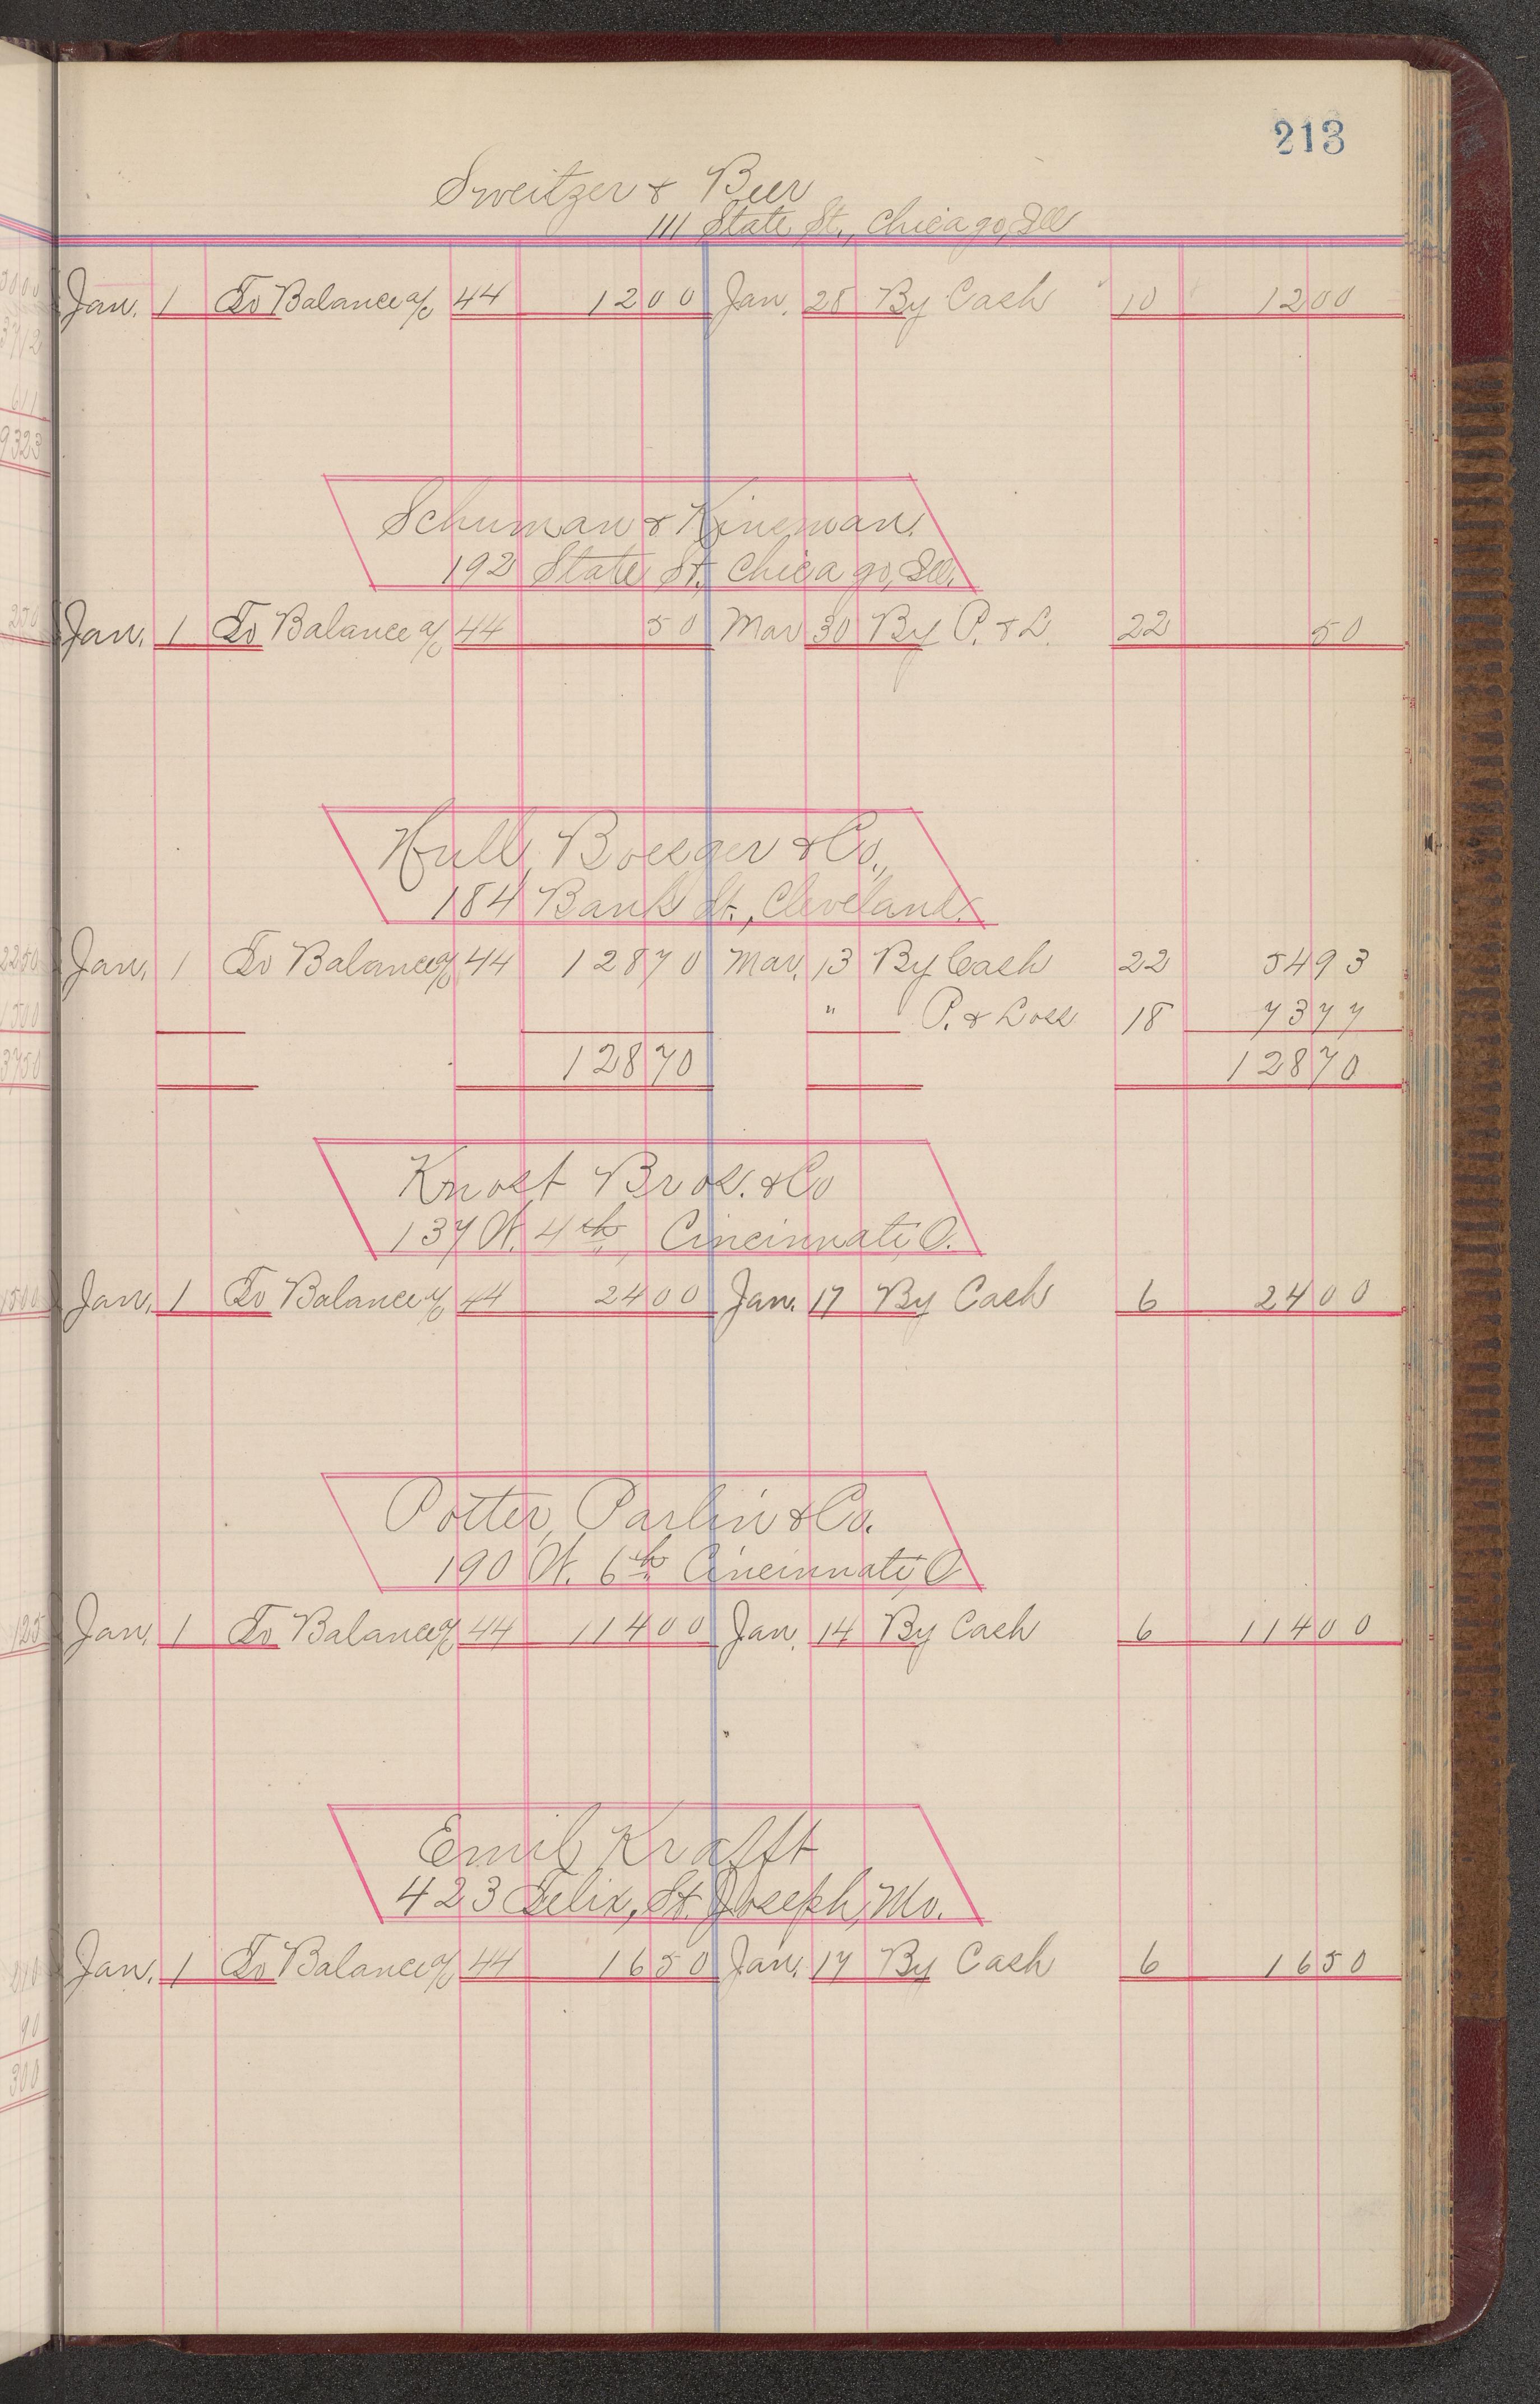 213
Sweitzer & Beer
111 State St., Chicago, Ill
Jan. 1 To Balance a/c 44 1200 Jan. 28 By Cash 10 1200
Schuman & Kinsman.
192 State St., Chicago, Ill.
Jan. 1 To Balance a/c 44 50 Mar 30 By P. & L. 22 50
Hull, Boesger & Co.,
184 Bank St., Cleveland.
Jan. 1 To Balance a/c 44 12870 Mar. 13 By Cash 22 5493
" P. & Loss 18 7377
12870 12870
Knost Bros. & Co
137 W. 4th, Cincinnati, O.
Jan. 1 To Balance a/c 44 2400 Jan. 17 By Cash 6 2400
Potter, Parlin & Co.
190 W. 6th Cincinnati, O
Jan. 1 To Balance a/c 44 11400 Jan. 14 By Cash 6 11400
Emil Krafft
423 Felix, St. Joseph, Mo.
Jan. 1 To Balance a/c 44 1650 Jan. 17 By Cash 6 1650